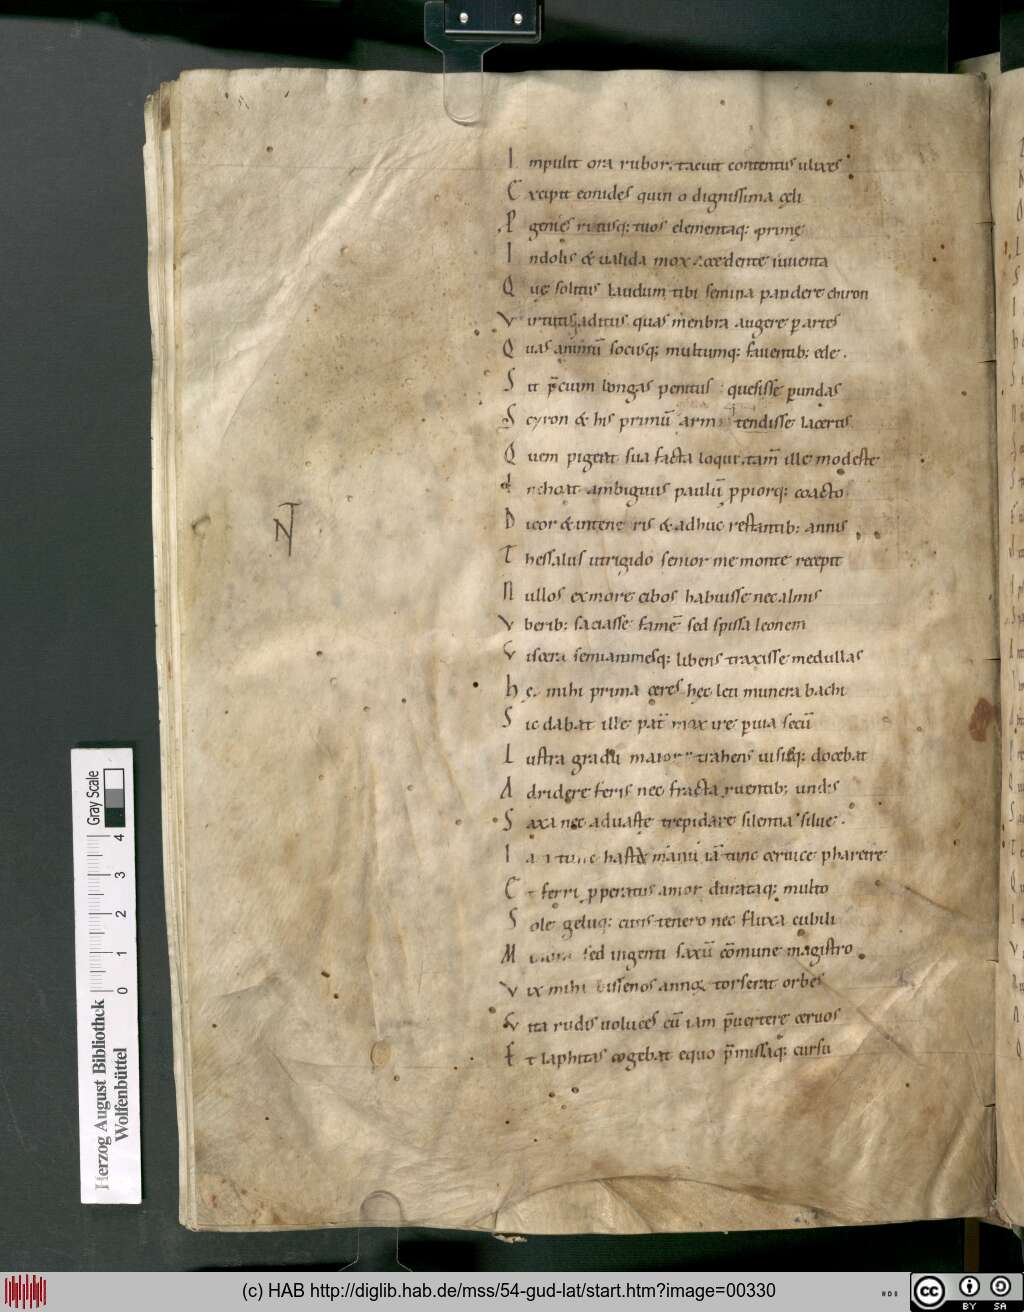 I mpulit ora rubor. tacuit contentus ulixes
E xcipit eonides quin o dignissima cęli
P genies ritusq: tuos elementaq: primę
I ndolis & ualida mox accedente iuuenta
Q ue solitus laudum tibi semina pandere chiron
V irtutisq; aditus quas menbra augere p artes
Q uas animū sociisq; multumq: fauentib; ede.
S it p̄cium longas penitus quesisse p undas
S cyron & his primū arma tendisse lacertis
Q uem pigeat sua facta loqui. tam̄ ille modeste
I nchoat ambiguus paulū ppiorq: coacto
D icor & in teneris & adhuc restantib: annis
T hessalus ut rigido senior me monte recepit
N ullos ex more cibos habuisse nec almis
V berib: saciasse famē sed spissa leonem
V iscera semianimesq; libens traxisse medullas
h ęc mihi prima ceres hęc leti munera bachi
S ic dabat ille pat̄ mox ire p uia secū
L ustra gradu maiore trahens uisisq: docebat
A dridere feris nec fracta ruentib; undis
S axa nec aduaste trepidare silentia silue.
I am tunc hasta manu iā tunc ceruice pharetre
E t ferri pperatus amor durataq; multo
S ole geluq: cutis tenero nec fluxa cubili
M sed ingenti saxū cōmune magistro
V ix mihi bissenos annoꝝ torserat orbes
V ita rudis uoluces cū iam p̄uertere ceruos
E t laphitas cogebat equo p̄missaq; cursu
N
Gray Scale
4
3
2
1
0
Herzog August Bibliothck
Wolfenbüttel
(c) HAB http://diglib.hab.de/mss/54-gud-lat/start.htm?image=00330
cc
BY SA